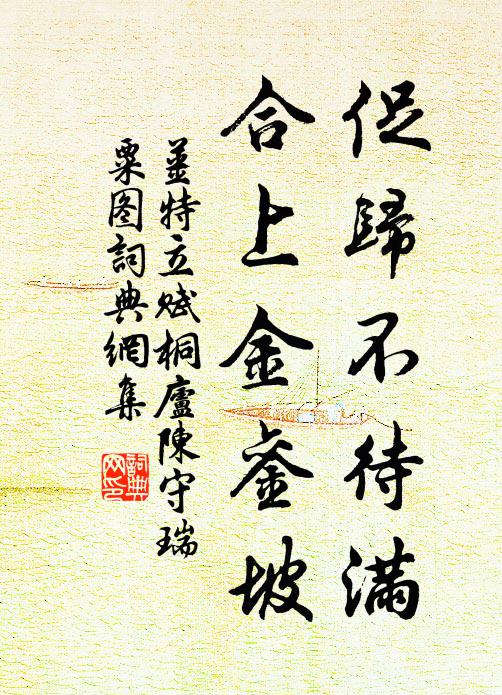 促歸不待滿
合上金銮坡
姜特立赋桐廬陳守瑞
粟图詞典網集
詞典網印